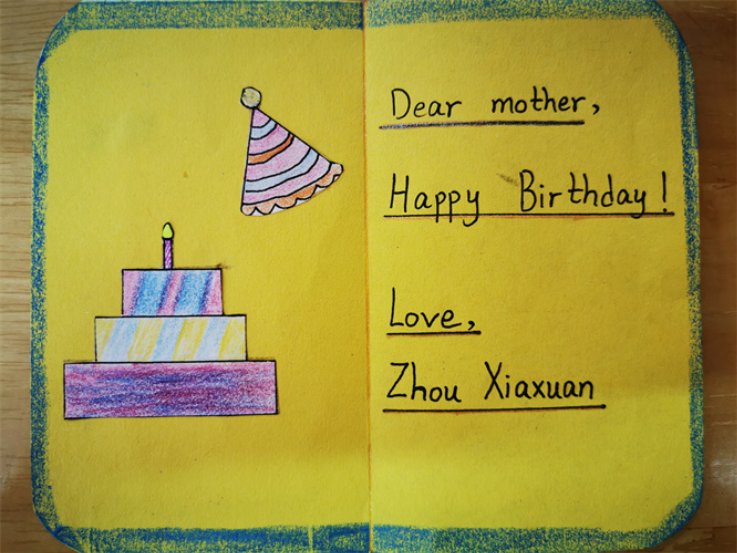 Dear mother,
Happy Birthday!
Love,
Zhou Xiaxuan